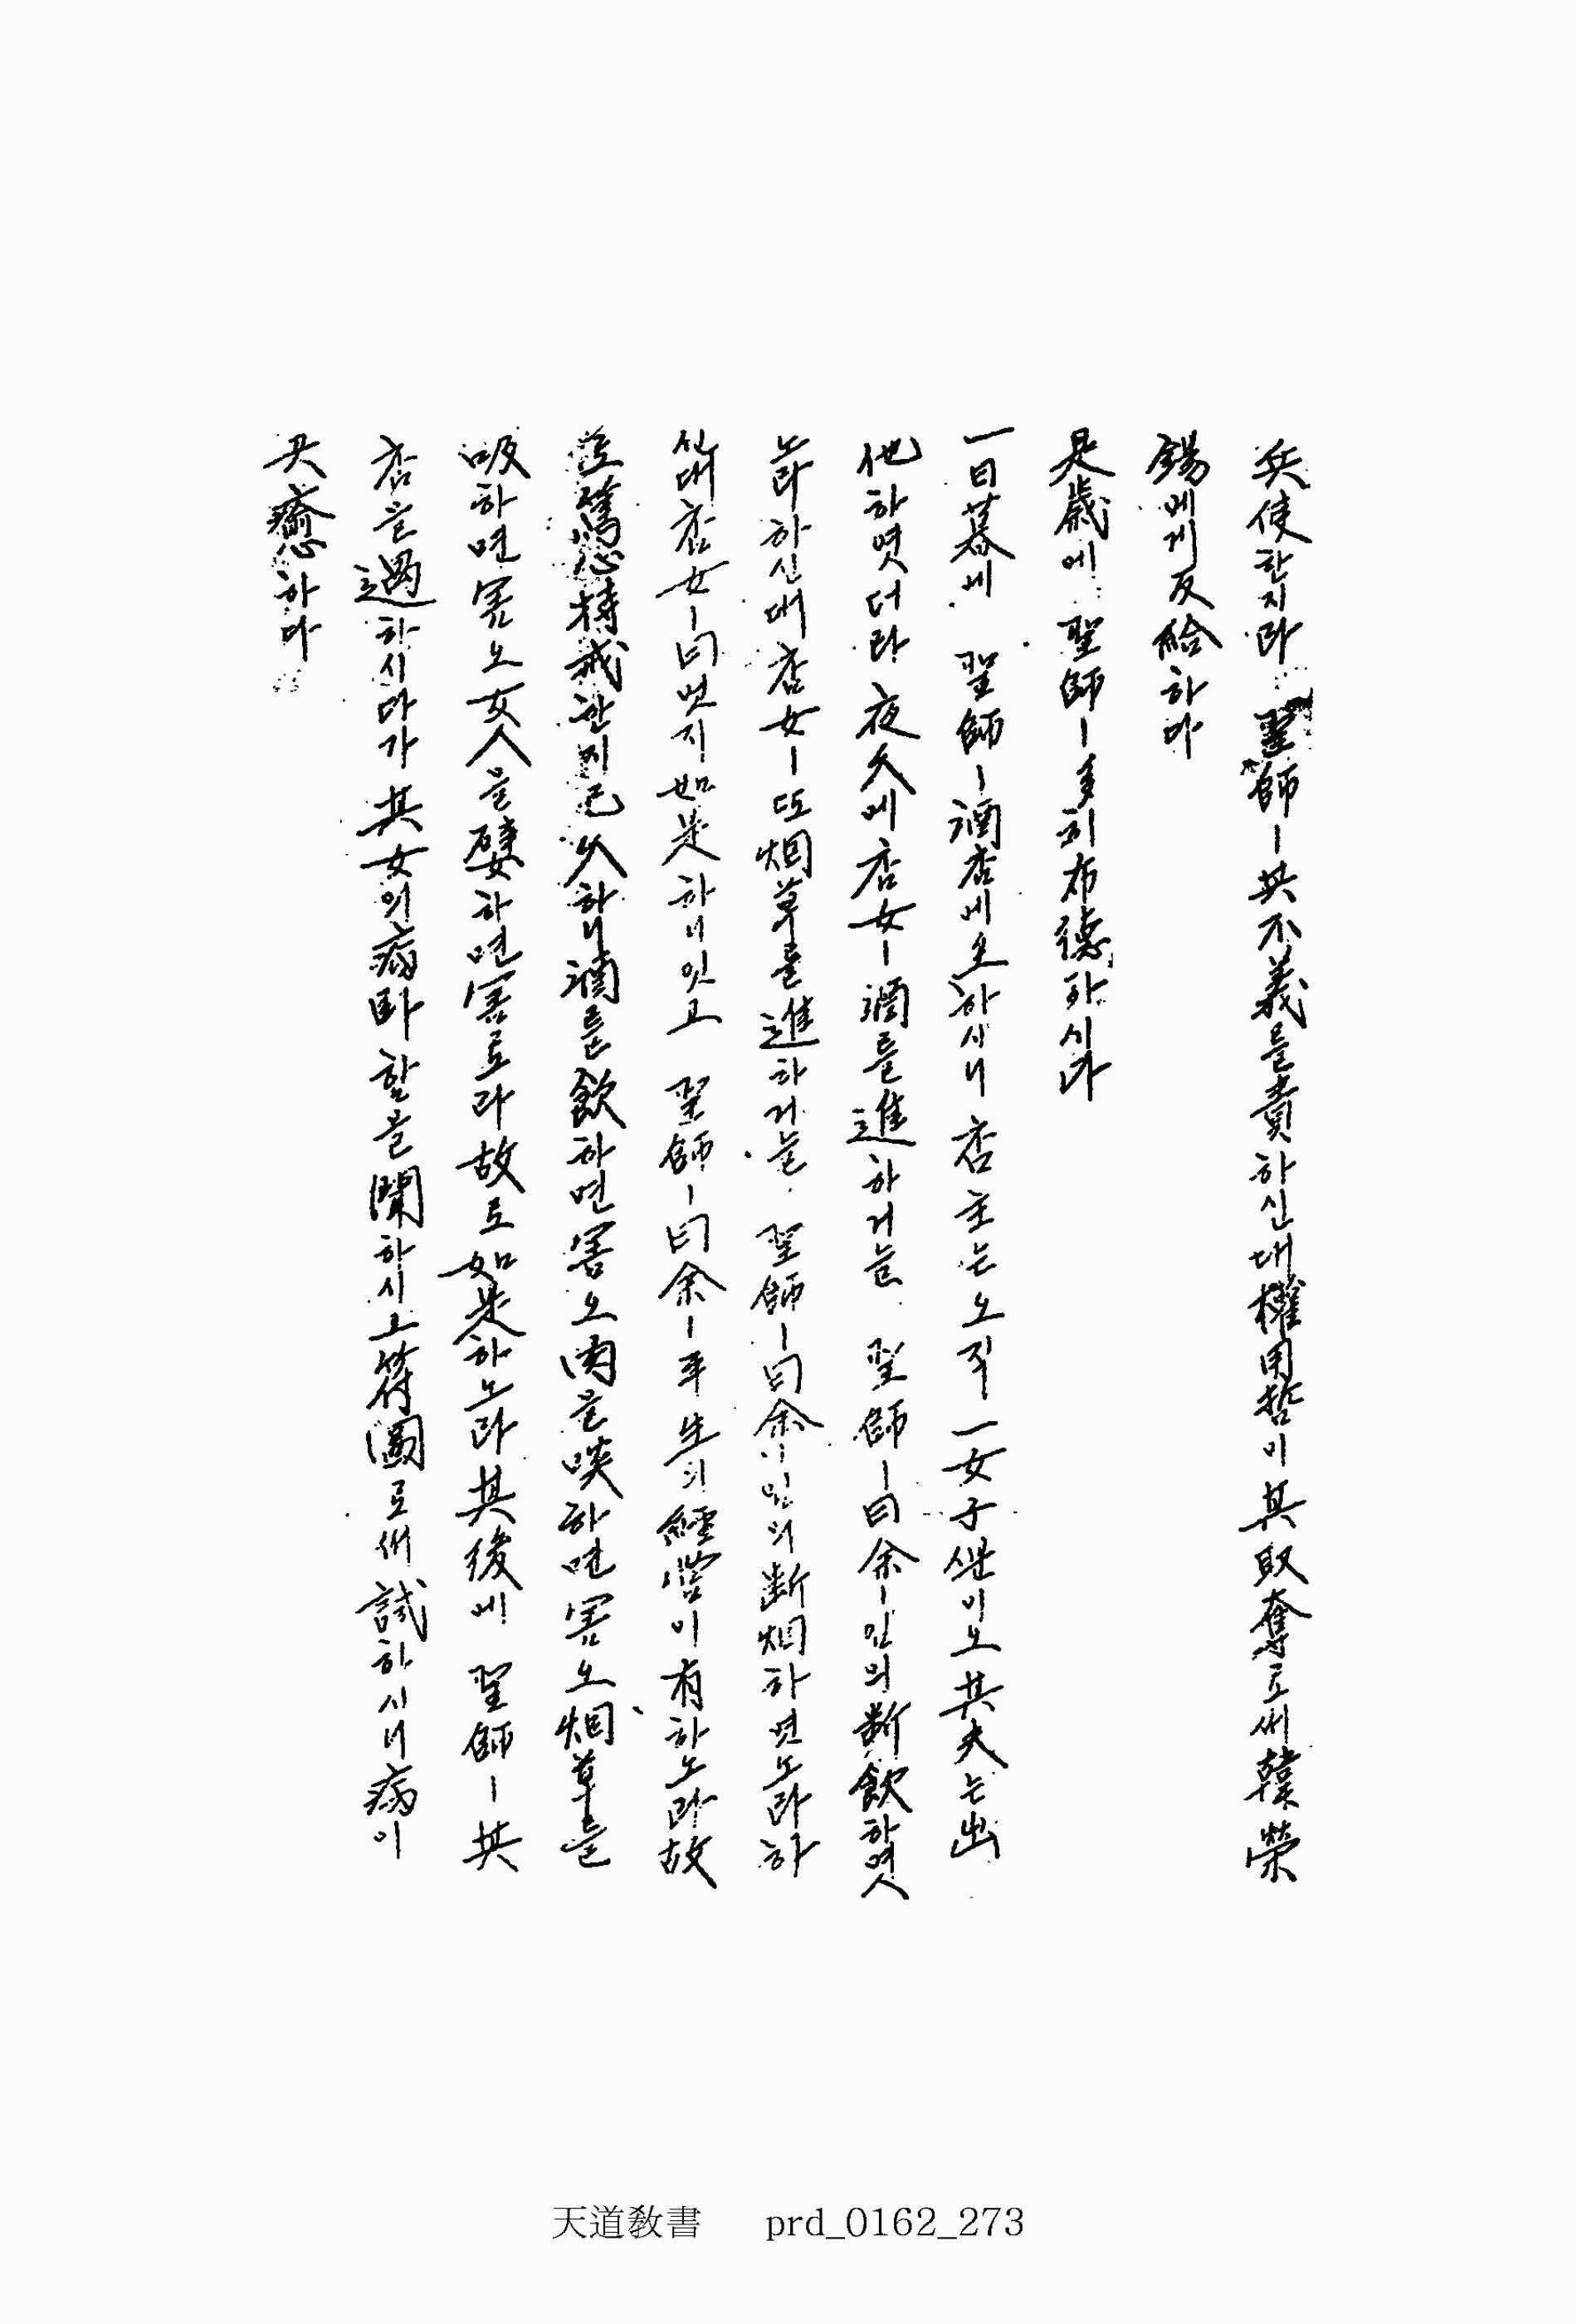 兵使한지라 聖師ㅣ其不義를責하신대權用哲이其取奪로써韓榮
錫에게反給하다
是歲에 聖師ㅣ多히布德하시다
一日暮에 聖師ㅣ酒店에至하시니店主는오직一女子뿐이오其夫는出
他하엿더라夜久에店女ㅣ酒를進하거늘 聖師ㅣ曰余ㅣ임의斷飮하엿
노라하신대店女ㅣ또烟草를進하거늘 聖師ㅣ曰余ㅣ임의斷烟하엿노라하
신대店女ㅣ曰엇지如是하니잇고 聖師ㅣ曰余ㅣ平生의經營이有하노라故
로 特戒한지已久하니酒를飮하면害오肉을啖하면害오烟草를
吸하면害오女人을嬖하면害로라故로如是하노라其後에 聖師ㅣ其
店을過하시다가其女의病臥함을聞하시고符圖로써試하시니病이
大癒하다
天道敎書 prd_0162_273